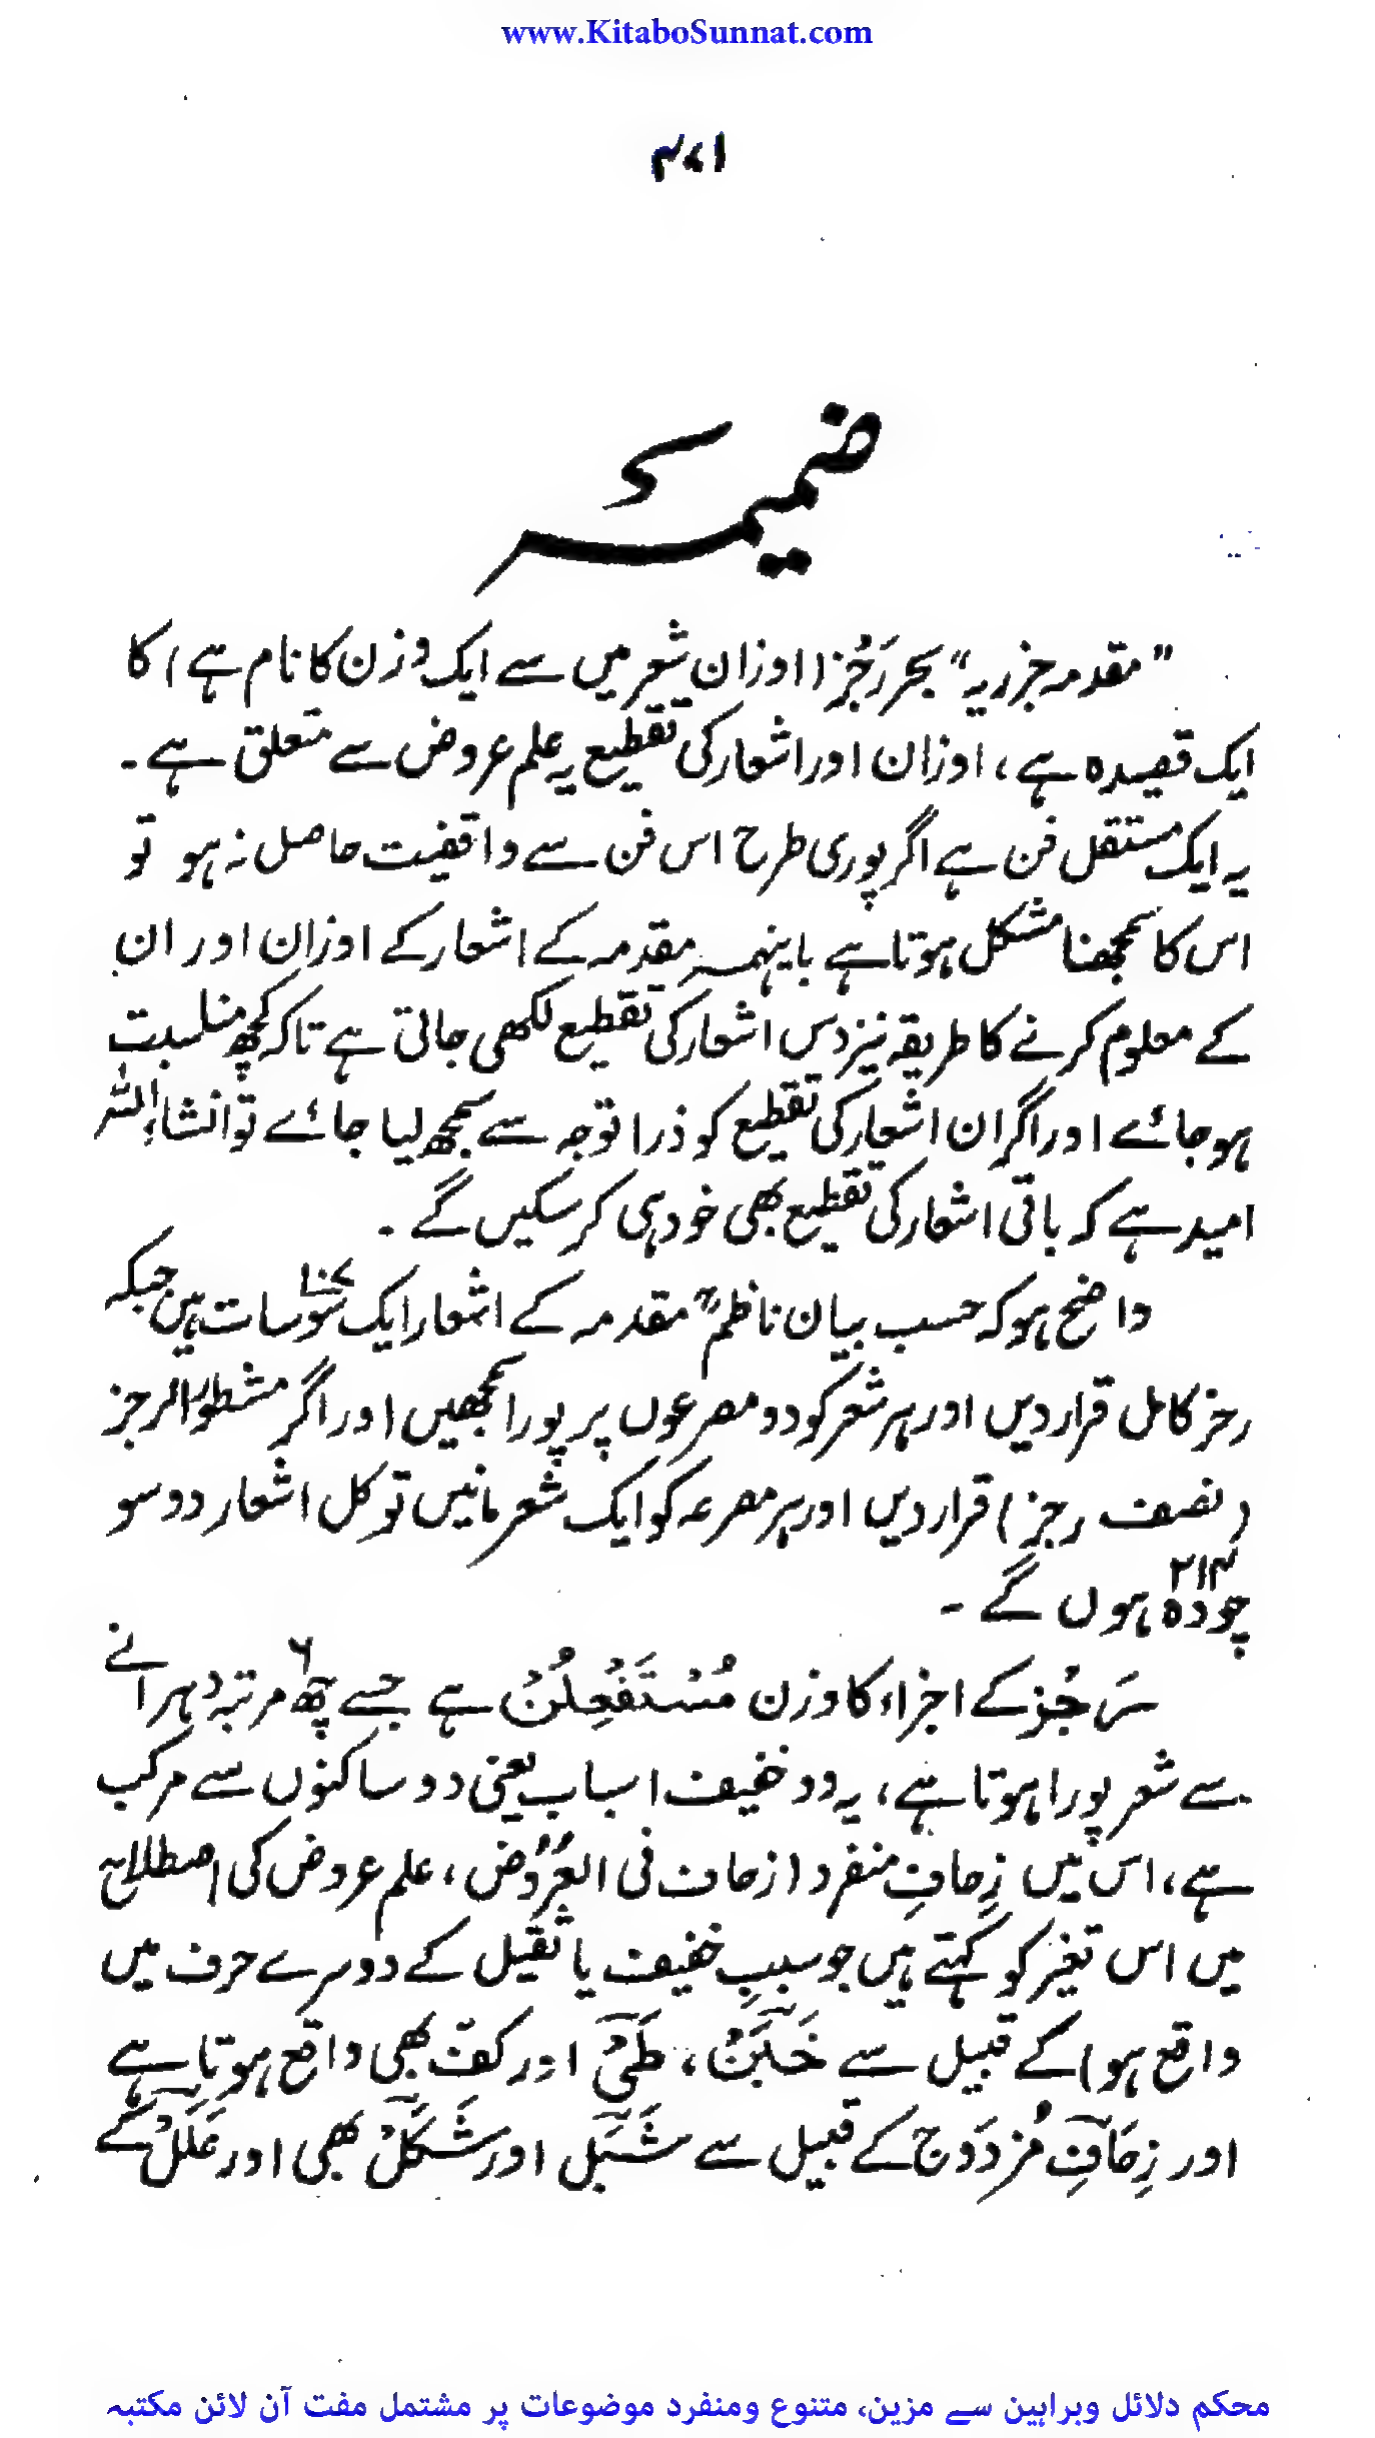 www.KitaboSunnat.com
۴۷۱
ضمیمہ
”مقدمہ جزریہ“ بحر رَجُز (اوزان شعر میں سے ایک وزن کا نام ہے) کا
ایک قصیدہ ہے، اوزان اور اشعار کی تقطیع یہ علم عروض سے متعلق ہے۔
یہ ایک مستقل فن ہے اگر پوری طرح اس فن سے واقفیت حاصل نہ ہو تو
اس کا سمجھنا مشکل ہوتا ہے باینہمہ مقدمہ کے اشعار کے اوزان اور ان
کے معلوم کرنے کا طریقہ نیز دس اشعار کی تقطیع لکھی جاتی ہے تاکہ کچھ مناسبت
ہو جائے اور اگر ان اشعار کی تقطیع کو ذرا توجہ سے سمجھ لیا جائے تو انشاء اللہ
امید ہے کہ باقی اشعار کی تقطیع بھی خود ہی کر سکیں گے۔
واضح ہو کہ حسب بیان ناظمؒ مقدمہ کے اشعار ایک سو سات ۱۰۷ ہیں جبکہ
رجز کامل قرار دیں اور ہر شعر کو دو مصرعوں پر پورا سمجھیں اور اگر مشطور الرجز
(نصف رجز) قرار دیں اور ہر مصرعہ کو ایک شعر مانیں تو کل اشعار دو سو
چودہ ۲۱۴ ہوں گے۔
رَجُز کے اجزاء کا وزن مُسْتَفْعِلُنْ ہے جسے چھ ۶ مرتبہ دہرانے
سے شعر پورا ہوتا ہے، یہ دو خفیف اسباب یعنی دو ساکنوں سے مرکب
ہے، اس میں زِحافِ منفرد (زحاف فی العُرُوض، علم عروض کی اصطلاح
میں اس تغیر کو کہتے ہیں جو سببِ خفیف یا ثقیل کے دوسرے حرف میں
واقع ہو) کے قبیل سے خَبَنْ، طَیْ اور کف بھی واقع ہوتا ہے
اور زِحافِ مُزدَوج کے قبیل سے شَبَل اور شَکَلْ بھی اور عَلَلْ کے
محکم دلائل وبراہین سے مزین، متنوع ومنفرد موضوعات پر مشتمل مفت آن لائن مکتبہ